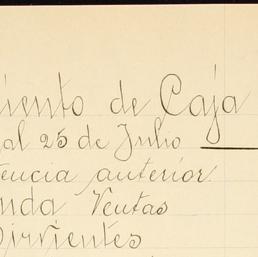 iento de Caja
al 25 de Julio
tencia anterior.
nda Ventas
Sirvientes